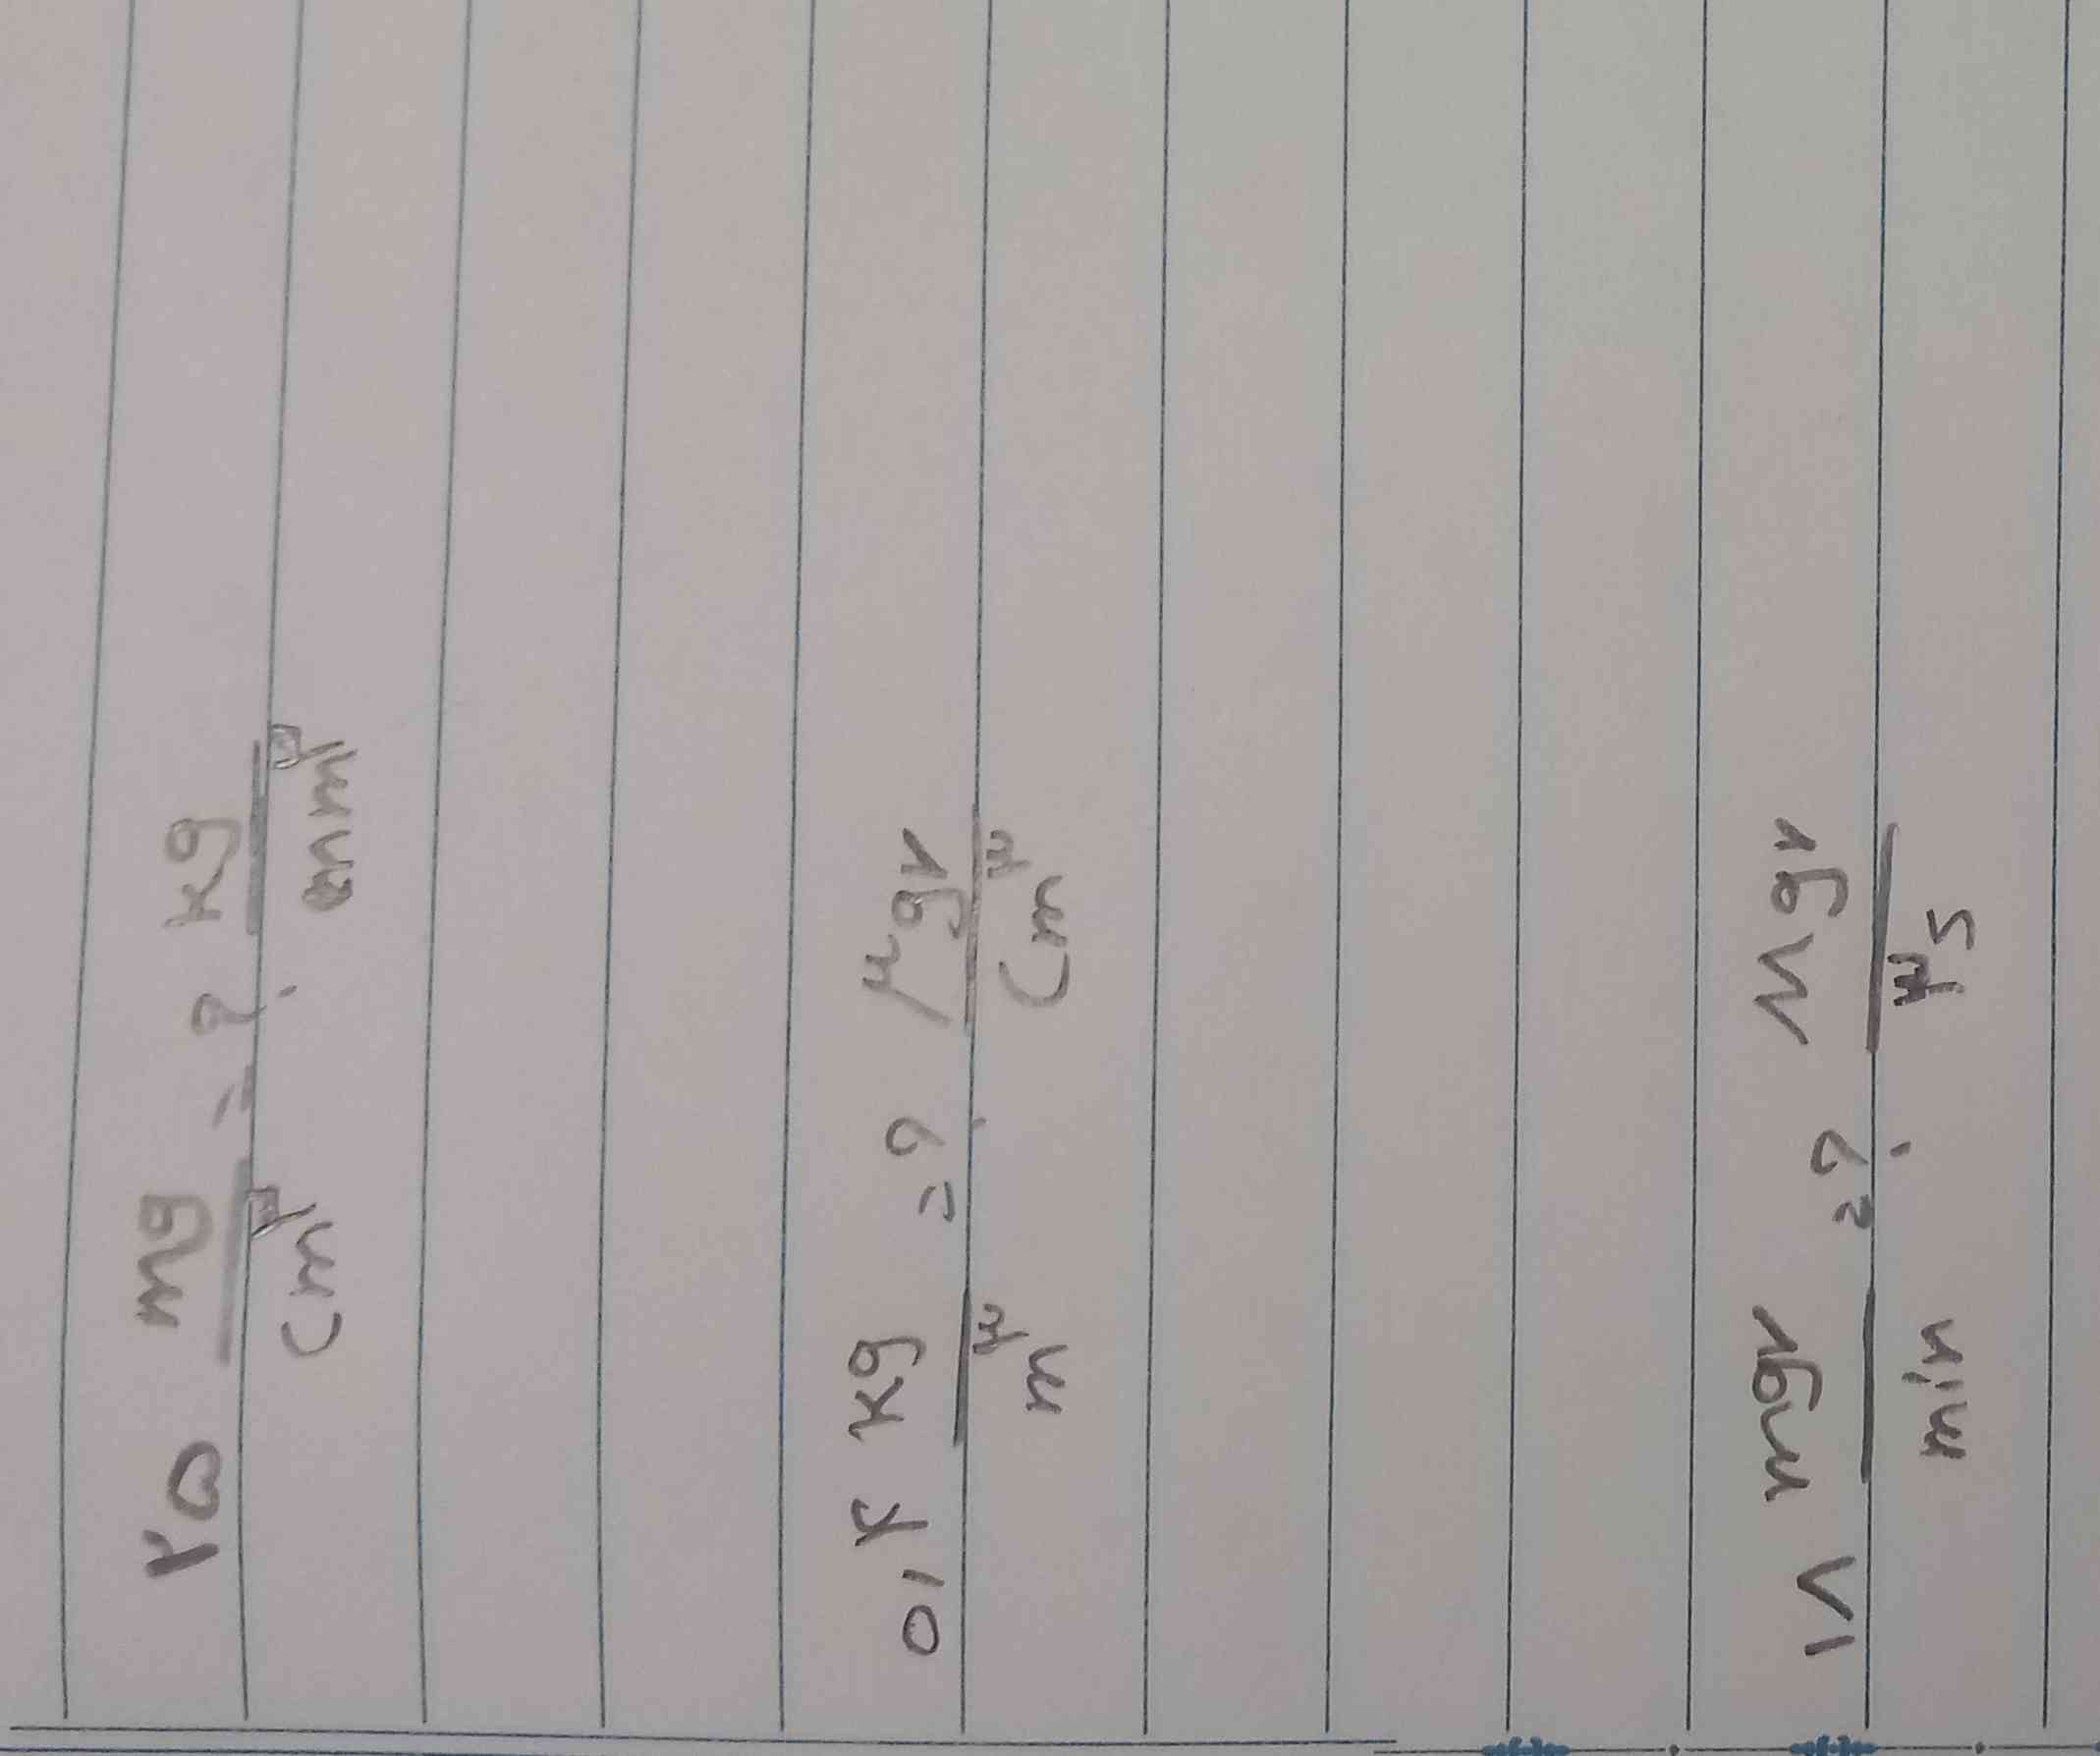 ۲۵ mg/cm² = ? kg/mm²
۰,۴ kg/m³ = ? μgr/cm³
۱۸ mgr/min = ? Mgr/μs